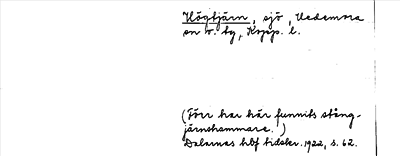 Högtjärn, sjö, Hedemora
sn o. by, Kopp. l.
(Förr har här funnits stång-
järnshammare.)
Dalarnas hbf tidskr. 1922, s. 62.